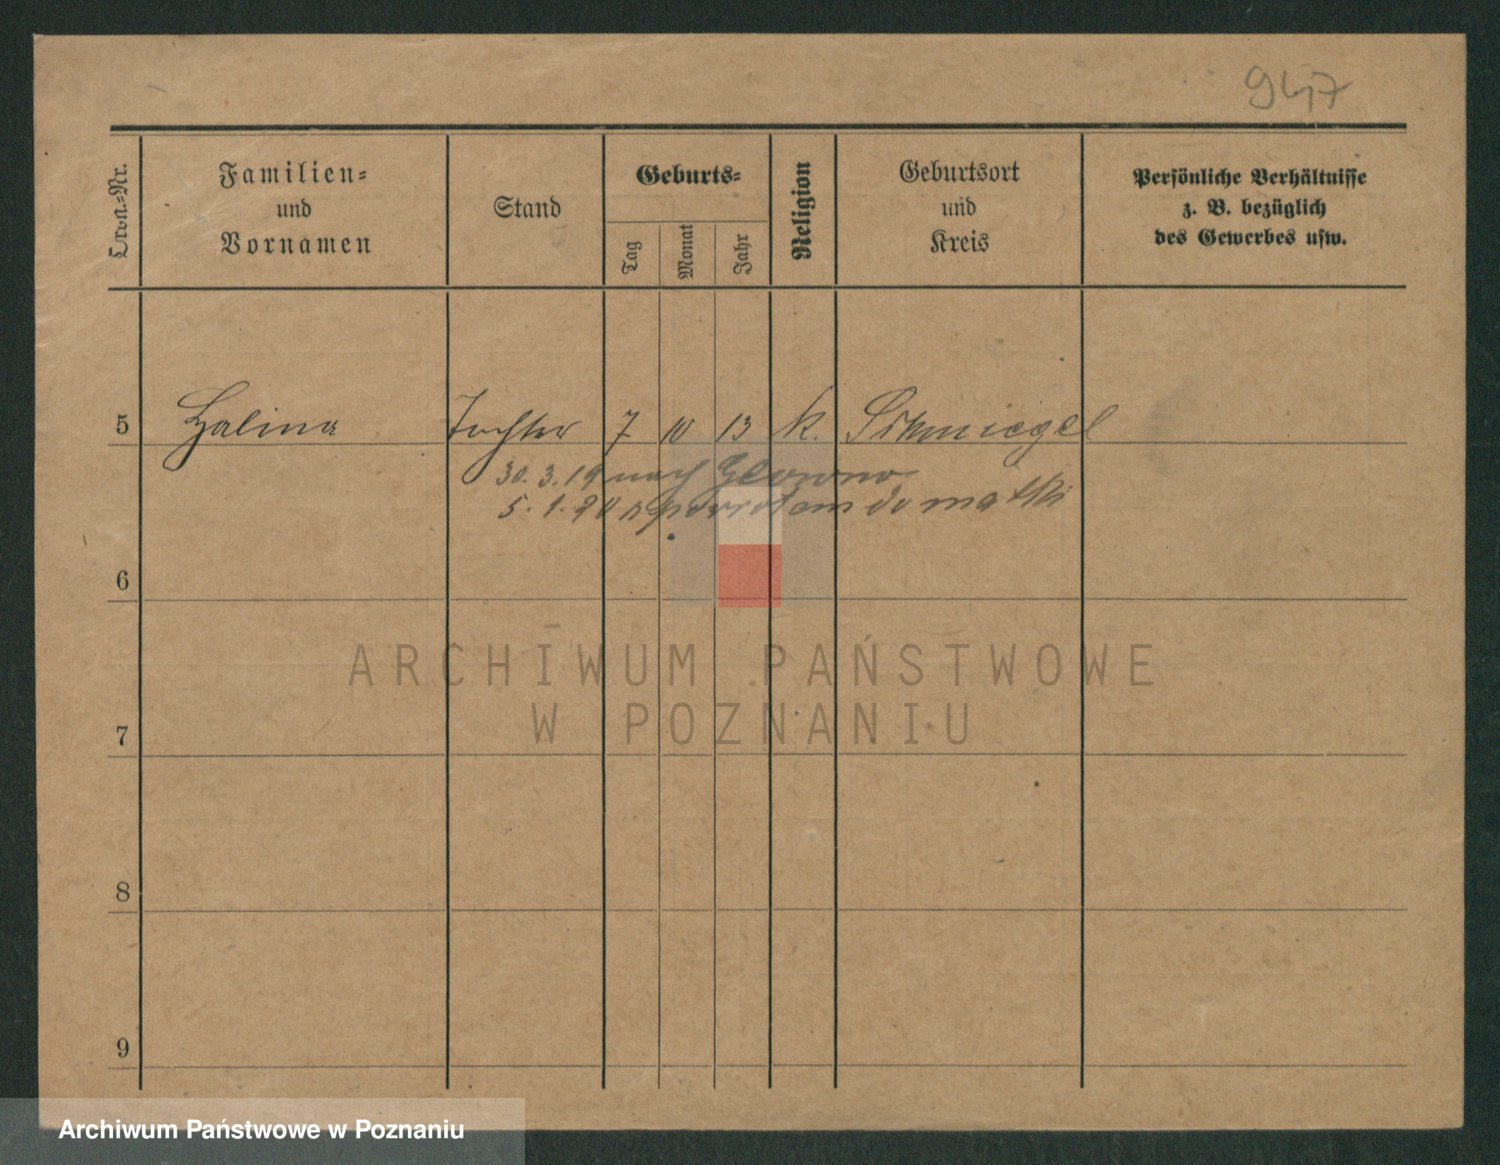 947
Lfdn.-Nr.
Familien-
und
Vornamen
Stand
Geburts-
Tag
Monat
Jahr
Religion
Geburtsort
und
Kreis
Persönliche Verhältnisse
z. B. bezüglich
des Gewerbes usw.
5 Halina Tochter 7 10 13 k. Schmiegel
30.3.19 nach Glowno
5.1.20 z powrotem do matki
6
7
8
9
ARCHIWUM PAŃSTWOWE
W POZNANIU
Archiwum Państwowe w Poznaniu